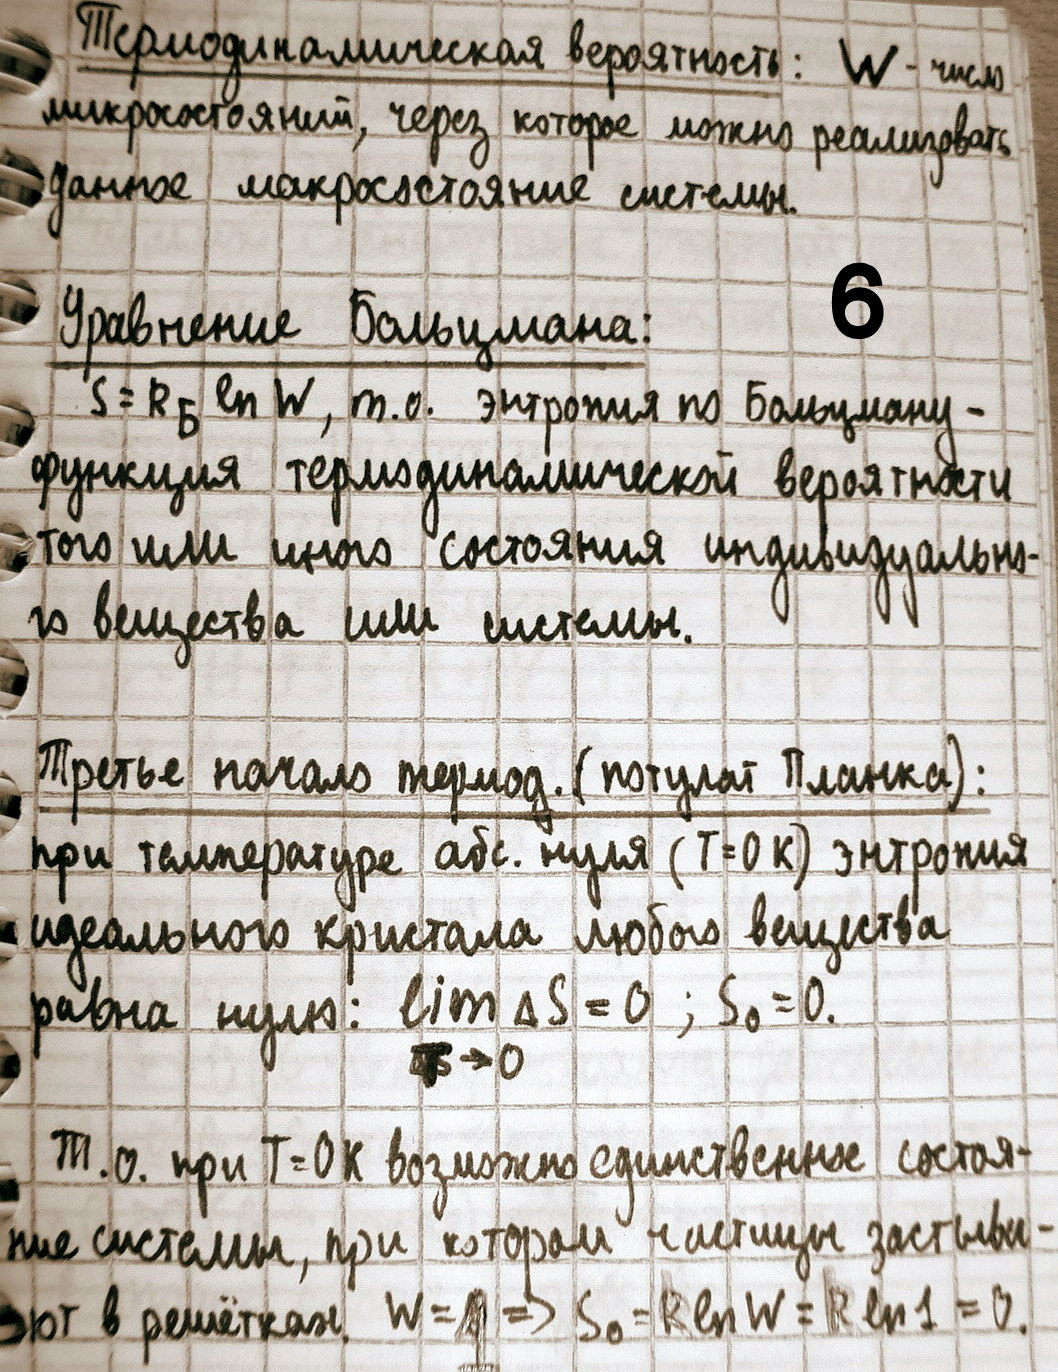 Термодинамическая вероятность: W - число
микросостояний, через которое можно реализовать
данное макросостояние системы.
6
Уравнение Больцмана:
S = k_Б ln W, т.о. энтропия по Больцману -
функция термодинамической вероятности
того или иного состояния индивидуально-
го вещества или системы.
Третье начало термод. (потулат Планка):
при температуре абс. нуля (T=0K) энтропия
идеального кристала любого вещества
равна нулю: lim ΔS = 0 ; S₀ = 0.
T→0
Т.о. при T=0K возможно единственное состоя-
ние системы, при котором частицы застыва-
ют в решётках. W = 1 => S₀ = k ln W = k ln 1 = 0.